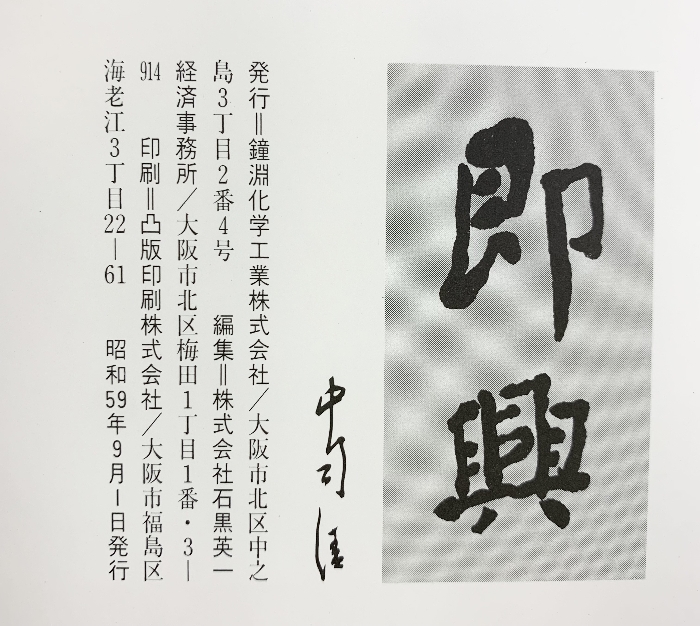 即興
中司清
発行＝鐘淵化学工業株式会社／大阪市北区中之
島3丁目2番4号　編集＝株式会社石黒英一
経済事務所／大阪市北区梅田1丁目1番・3－
914　印刷＝凸版印刷株式会社／大阪市福島区
海老江3丁目22－61　昭和59年9月1日発行